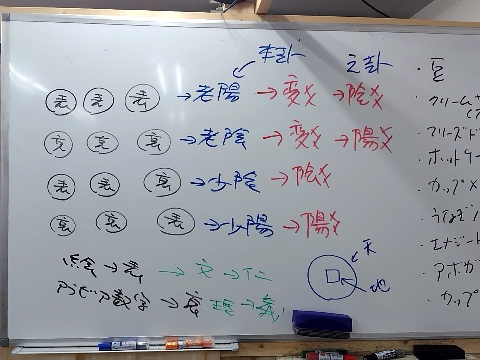 本卦
之卦
表 表 表 →老陽 →変爻 →陰爻
裏 裏 裏 →老陰 →変爻 →陽爻
表 表 裏 →少陰 →陰爻
裏 裏 表 →少陽 →陽爻
漢字→表 →文→仁
アラビア数字→裏 理→義
天
地
・豆
・クリーム
・フリーズド
・ホットケー
・カップメ
・エナジー
・アボガ
・カップ